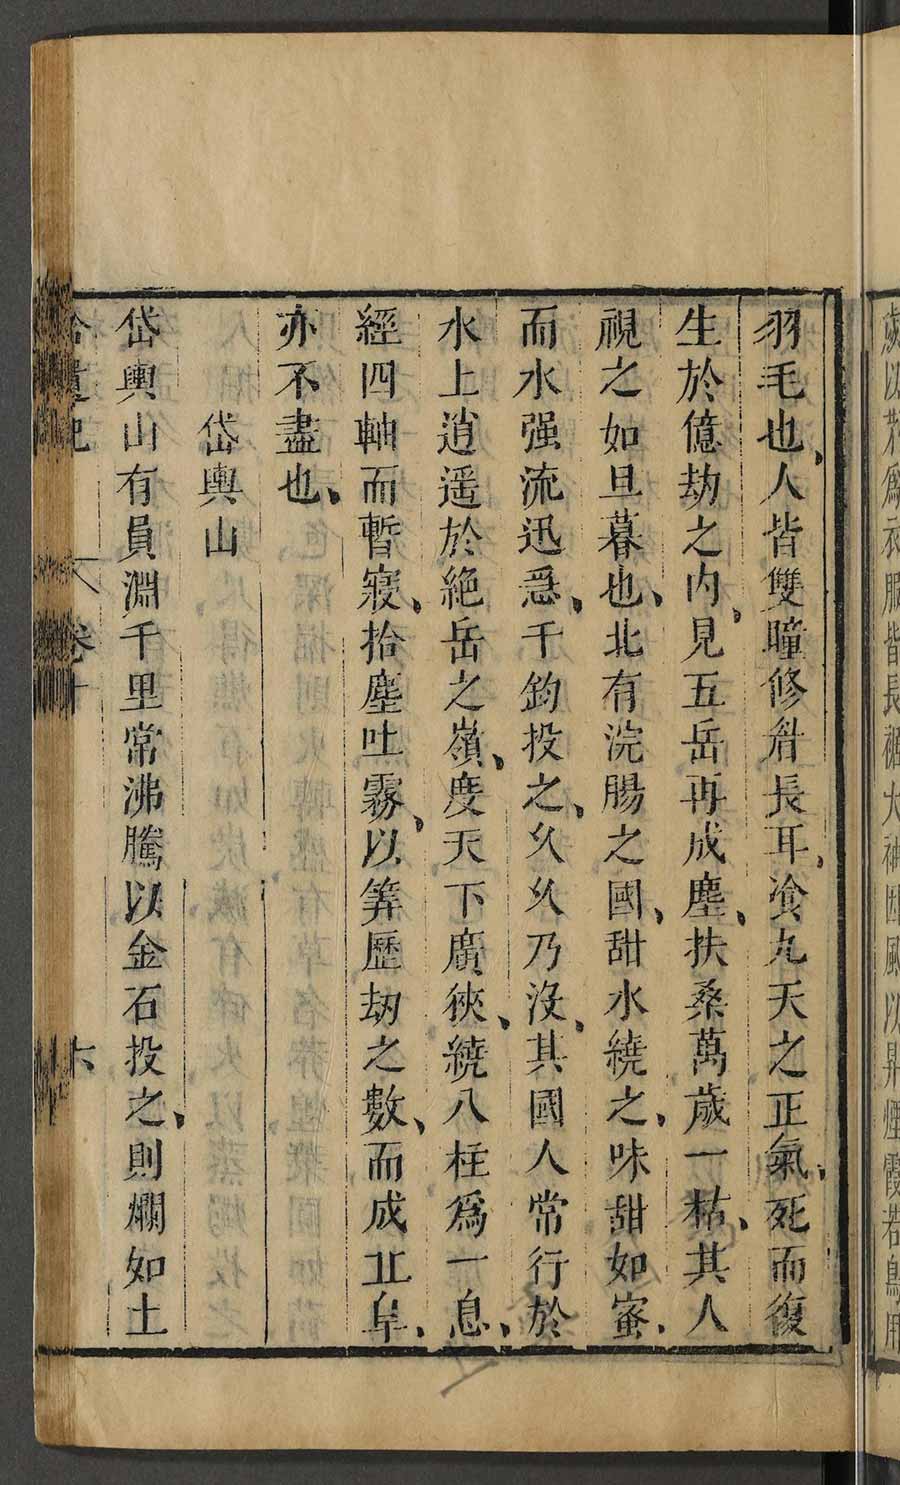 歲以茅爲衣服皆長裾大袖因風以昇煙霞若鳥用
羽毛也、人皆雙瞳修眉長耳、飡九天之正氣、死而復
生於億劫之内、見五岳再成塵、扶桑萬歲一枯、其人
視之如旦暮也、北有浣腸之國、甜水繞之、味甜如蜜、
而水强流迅急、千鈞投之、久久乃沒、其國人常行於
水上逍遥於絶岳之嶺、度天下廣狹、繞八柱爲一息、
經四軸而暫寢、拾塵吐霧、以筭歷劫之數、而成丘阜、
亦不盡也、
岱輿山
岱輿山有員淵千里常沸騰以金石投之、則爛如土
拾遺記
卷十
六